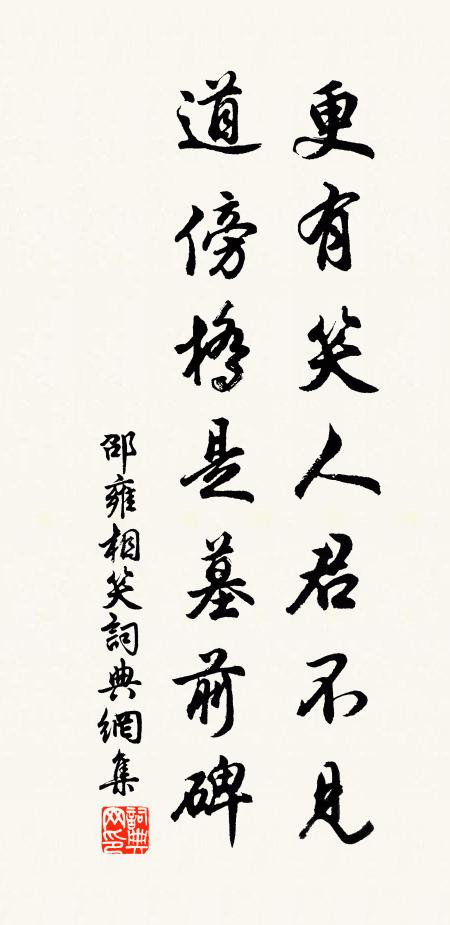 更有笑人君不見
道傍橋是墓前碑
邵雍相笑詞典網集
詞典網印